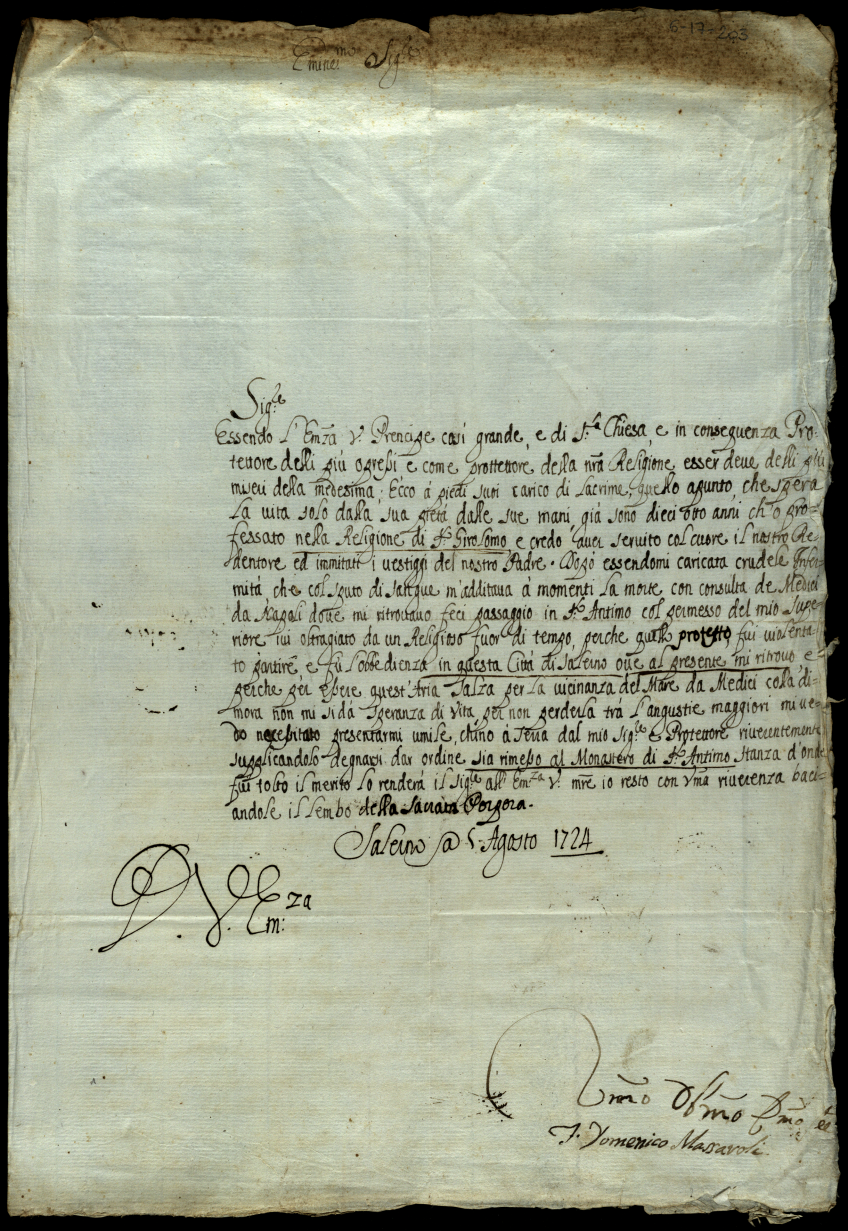 6-17-203
Emine.mo Sig.re
Sig.re
Essendo l'Em.za V.a Prencipe casi grande, e di S.ta Chiesa, e in conseguenza Pro-
tettore delli più opressi e come prottettore della nrã Religione, esser deve delli più
miseri della medesima; Ecco à piedi suoi carico di Lacrime, quello apunto, che spera
La vita solo dalla sua pietà dalle sue mani, già sono dieci otto anni ch'ò pro-
fessato nella Religione di S. Girolomo e credo d'aver servito col cuore il nostro Re-
dentore ed immitati i vestiggi del nostro Padre. Dopo essendomi caricata crudele Infer-
mità, che col sputo di sangue m'additava à momenti La morte, con consulta de Medici
da Napoli dove mi ritrovavo feci passaggio in S. Antimo col permesso del mio Supe-
riore ivi oltragiato da un Religioso fuor di tempo, perche quello protetto, fui violenta-
to partire, e fù l'obbedienza in questa Città di Salerno ove al presente mi ritrovo, e
perche per essere quest'Aria Salza per La vicinanza del Mare da Medici colla di-
mora non mi si dà speranza di Vita, per non perderla trà l'angustie maggiori mi ve-
do necessitato presentarmi umile, chino à terra dal mio Sig.re e Protettore riverentemente
supplicandolo degnarsi dar ordine sia rimesso al Monastero di S. Antimo stanza d'onde
fui tolto il merito lo renderà il Sig.re all'Em.za V.a mr̃e io resto con Vm̃a riverenza baci-
andole il lembo della sacrata Porpora.
Salerno 5 Agosto 1724
D. V. Em.za
Um̃o
F. Domenico Massaroli